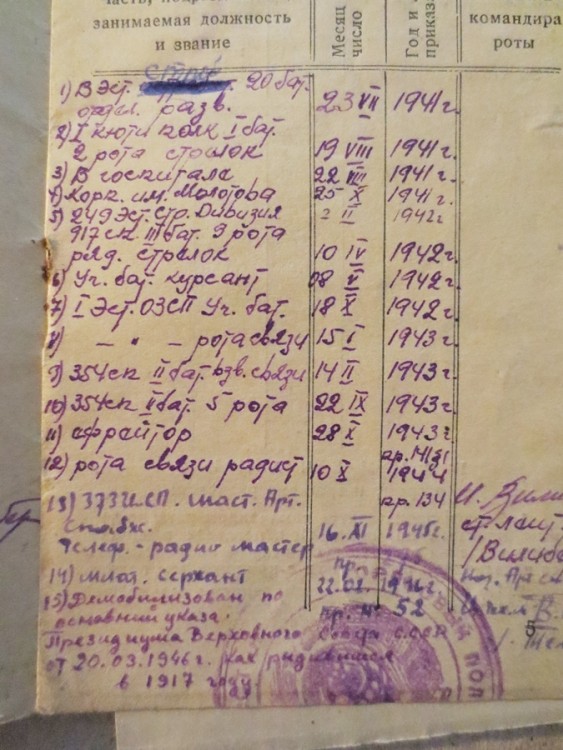 занимаемая должность
и звание
Месяц
число
Год и
приказ
командира
роты
1) В Эст. 20 бат.
отдел. разв. 23 VII 1941 г.
2) I полк I бат.
2 рота стрелок 19 VIII 1941 г.
3) В госпитале 22 VIII 1941 г.
4) Хорк. им. Молотова 25 X 1941 г.
5) 249 Эст. Стр. Дивизия 2 II 1942 г.
917 сп. III бат. 9 рота
ряд. стрелок 10 IV 1942 г.
6) Уч. бат. курсант 08 V 1942 г.
7) I Эст. ОЗСП Уч. бат. 18 X 1942 г.
8) — " — рота связи 15 I 1943 г.
9) 354 сп II бат. взв. связи 14 II 1943 г.
10) 354 сп II бат. 5 рота 22 IX 1943 г.
11) ефрейтор 28 X 1943 г.
12) рота связи радист 10 X 1944
пр. 134
13) маст. Арт.
снабж. 16. XI 1945 г.
Телеф. - радио мастер
14) млад. сержант 22.02. 1946 г.
15) Демобилизован по пр. № 52
основании указа.
Президиума Верховного Совета СССР
от 20.03.1946 г. как родившийся
в 1917 году